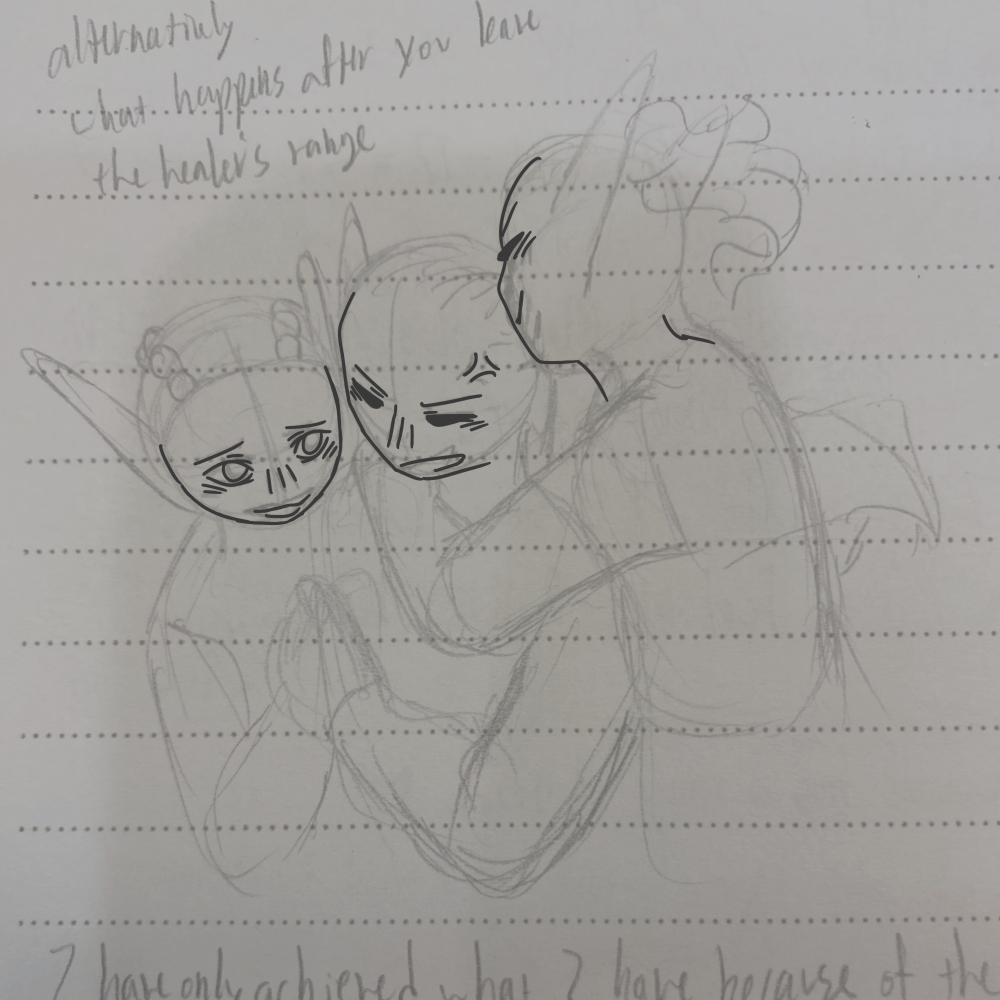 alternativly
what happens after you leave
the healer's range
I have only achieved what I have because of the